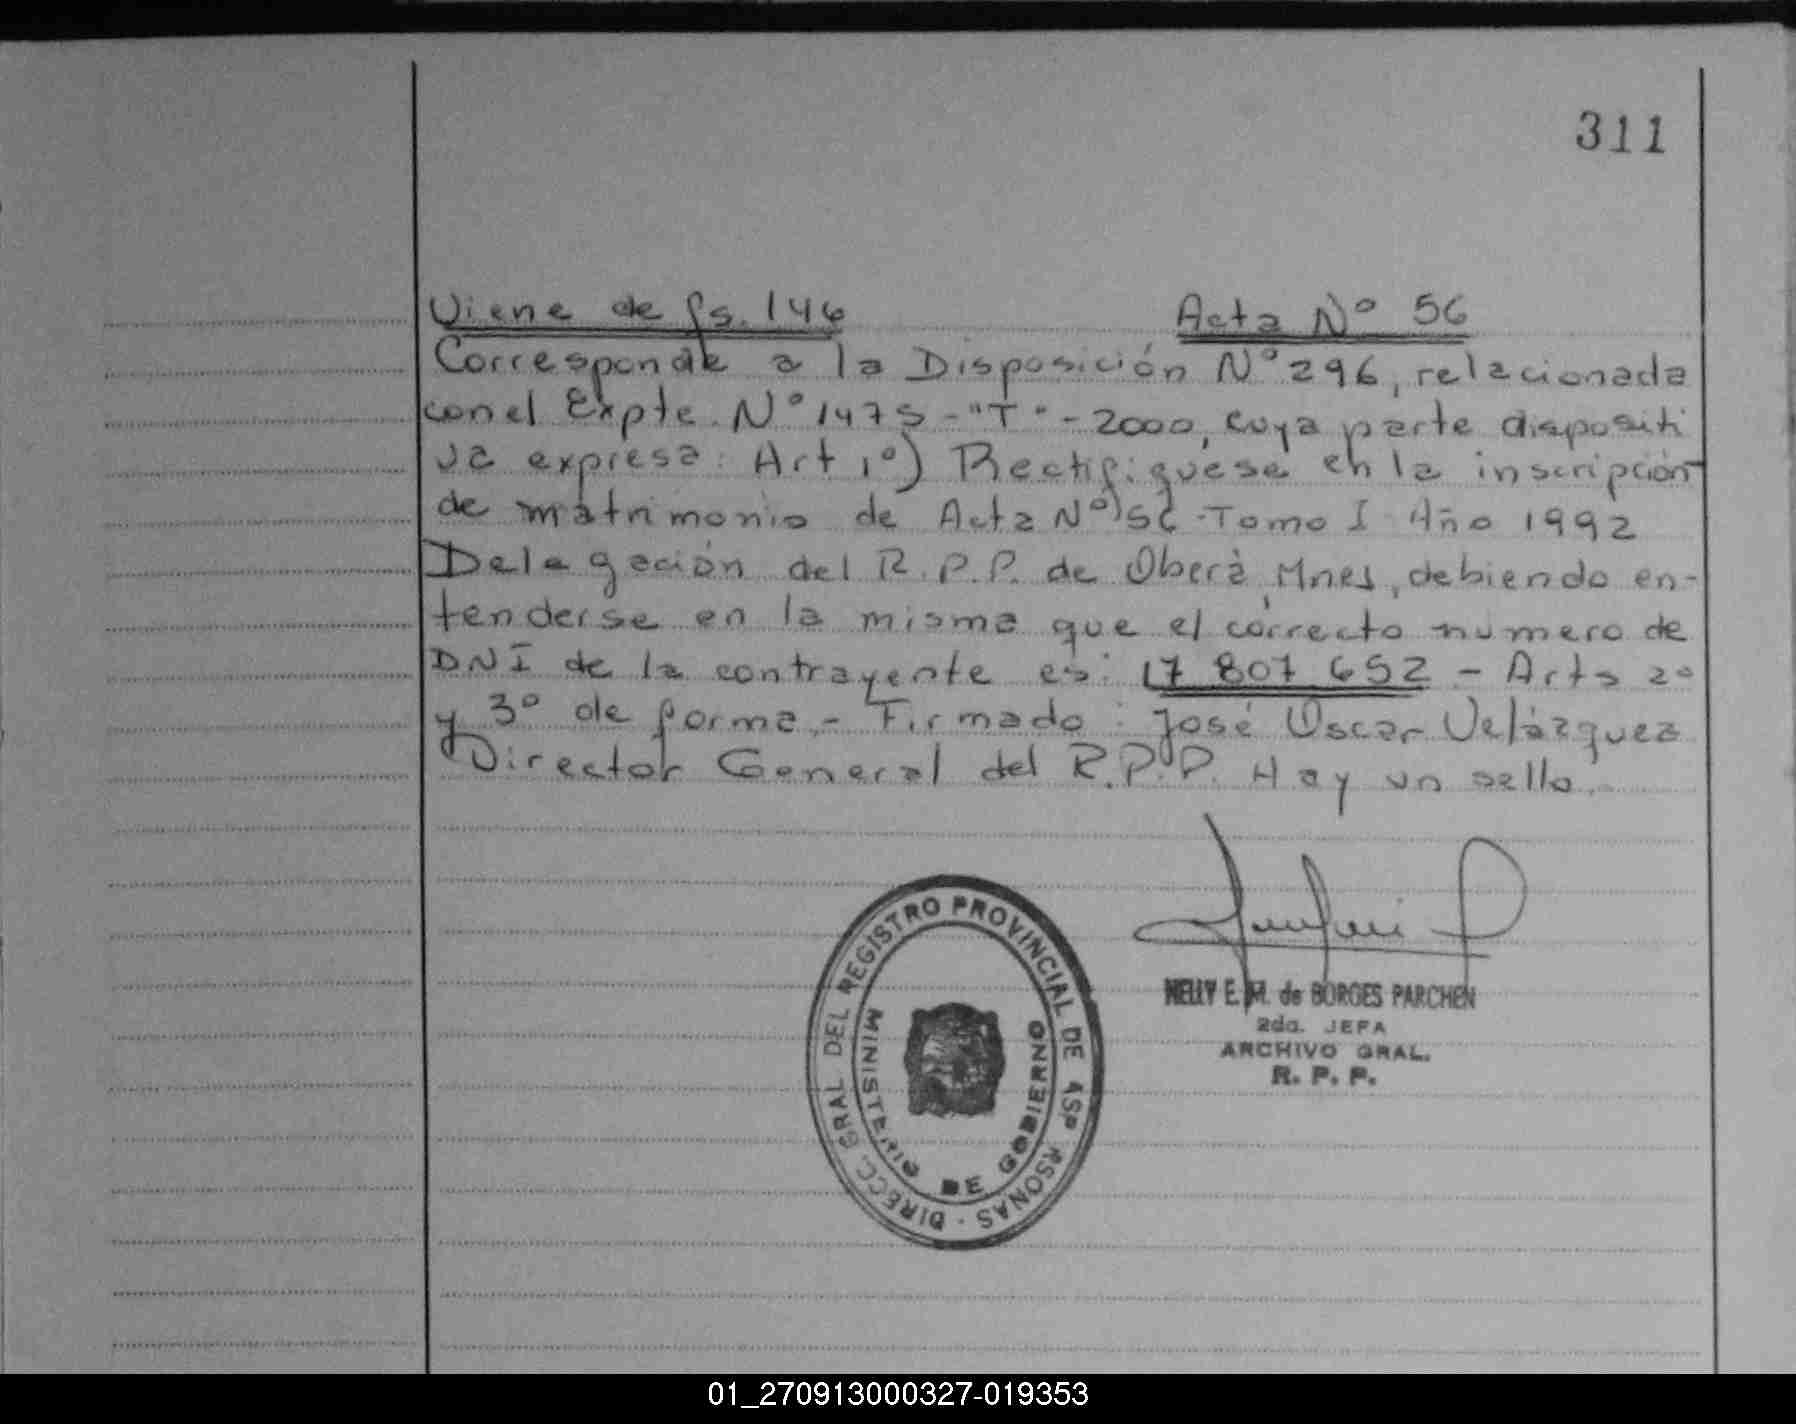 311
Viene de fs. 146 Acta Nº 56
Corresponde a la Disposición Nº 296, relacionada
con el Expte. Nº 1475 - "T" - 2000, cuya parte dispositi
va expresa: Art 1º) Rectifíquese en la inscripción
de matrimonio de Acta Nº 56 - Tomo I - Año 1992
Delegación del R.P.P. de Oberá, Mnes, debiendo en-
tenderse en la misma que el correcto numero de
DNI de la contrayente es: 17 807 652 - Arts 2º
y 3º de forma.- Firmado: José Oscar Velázquez
Director General del R.P.P. Hay un sello.-
DIRECC. GRAL DEL REGISTRO PROVINCIAL DE
MINISTERIO DE GOBIERNO
NELLY E. M. de BORGES PARCHEN
2da. JEFA
ARCHIVO GRAL.
R. P. P.
01_270913000327-019353